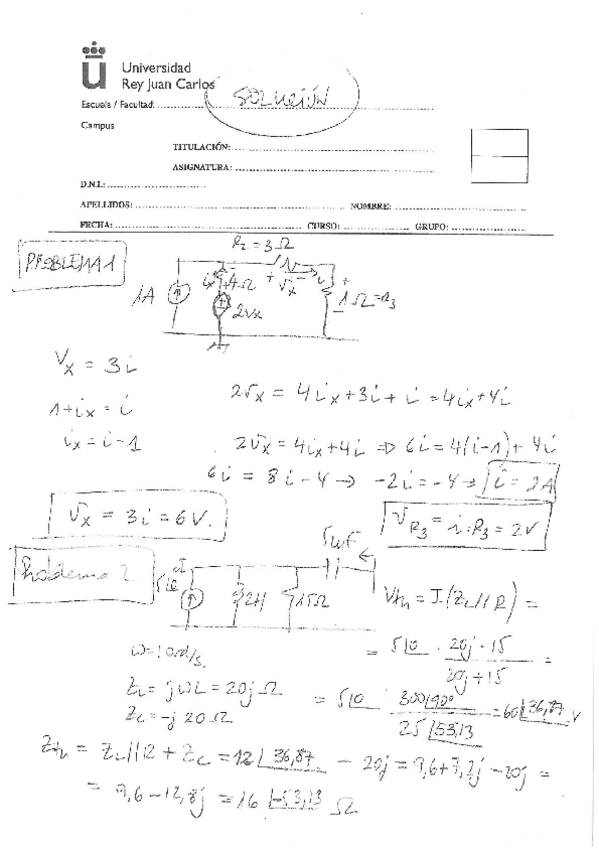 Universidad
Rey Juan Carlos
SOLUCIÓN
Escuela / Facultad:
Campus
TITULACIÓN:
ASIGNATURA:
D.N.I.:
APELLIDOS: NOMBRE:
FECHA: CURSO: GRUPO:
PROBLEMA 1
R₂ = 3 Ω
1A ix 4Ω + Vx - i + 1Ω = R₃ -
2Vx
Vx = 3i
1 + ix = i
ix = i - 1
2Vx = 4ix + 3i + i = 4ix + 4i
2Vx = 4ix + 4i ⇒ 6i = 4(i-1) + 4i
6i = 8i - 4 → -2i = -4 → i = 2A
Vx = 3i = 6V.
V_R₃ = i · R₃ = 2V
Problema 2
5|0 I 2H 15Ω 5mF
Vth = I · (ZL // R) =
= 5|0 · 20j · 15 / 20j + 15 =
= 5|0 300|90° / 25|53,13 = 60|36,87 V
ω = 10 rad/s,
ZL = jωL = 20j Ω
Zc = -j 20 Ω
Zth = ZL // R + Zc = 12|36,87 - 20j = 9,6 + 7,2j - 20j =
= 9,6 - 12,8j = 16|-53,13 Ω